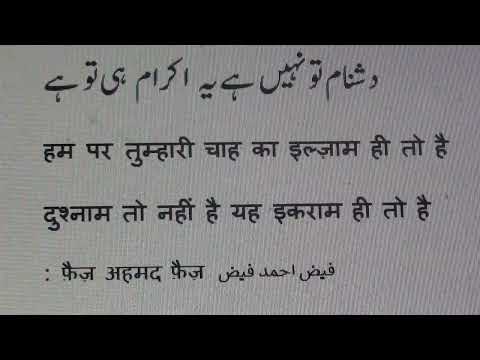 دشنام تو نہیں ہے یہ اکرام ہی تو ہے
हम पर तुम्हारी चाह का इल्ज़ाम ही तो है
दुश्नाम तो नहीं है यह इकराम ही तो है
: फ़ैज़ अहमद फ़ैज़ فیض احمد فیض